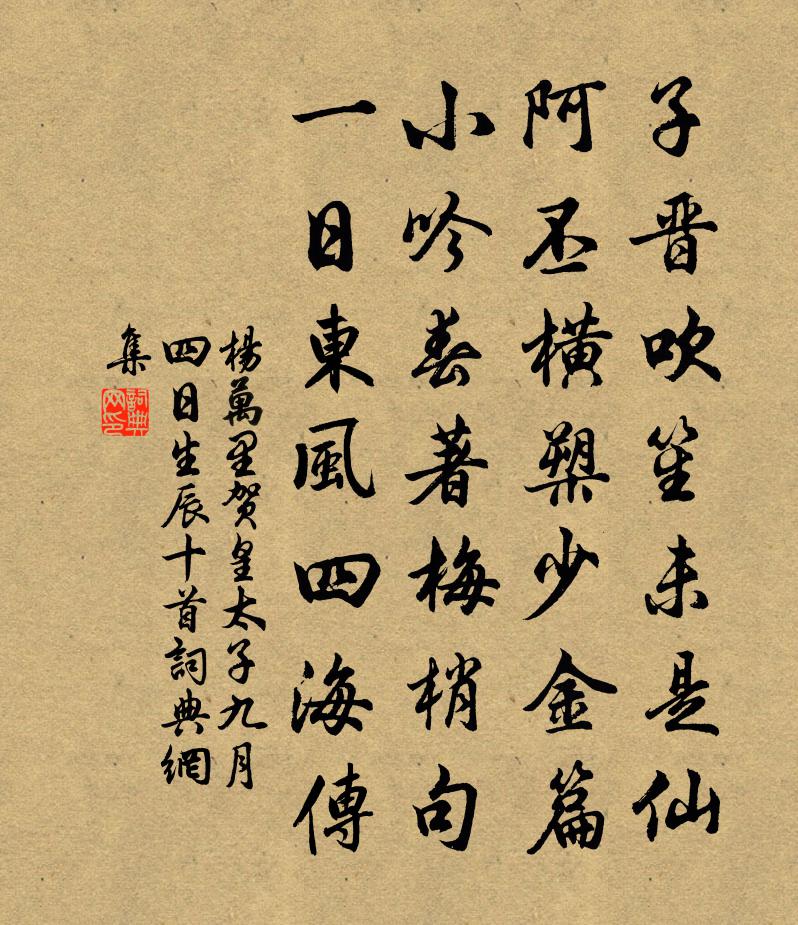 子晋吹笙未是仙
阿丕橫槊少金篇
小吟春著梅梢句
一日東風四海傳
楊萬里賀皇太子九月
四日生辰十首詞典網
集
詞典
网印